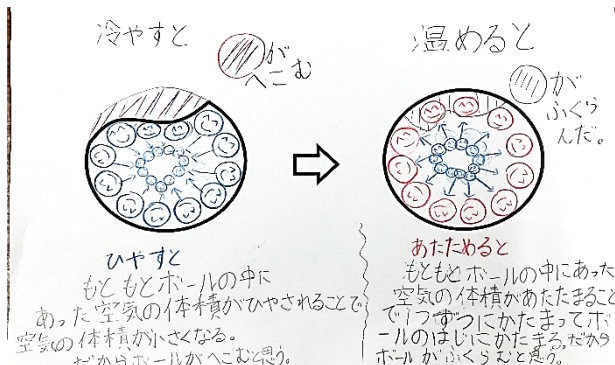 冷やすと
がへこむ
ひやすと
もともとボールの中に
あった空気の体積がひやされることで
空気の体積が小さくなる。
だからボールがへこむと思う。
温めると
が
ふくら
んだ。
あたためると
もともとボールの中にあった
空気の体積があたたまること
で1つずつにかたまってボ
ールのはじにかたまる。だから
ボールがふくらむと思う。